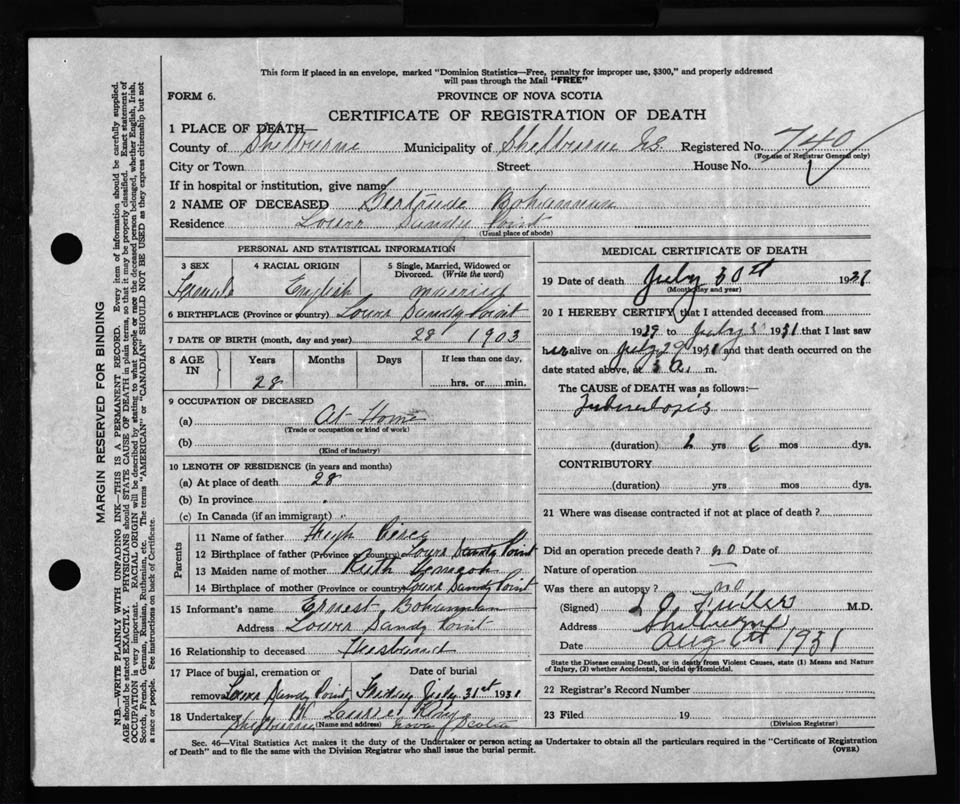 This form if placed in an envelope, marked "Dominion Statistics—Free, penalty for improper use, $300," and properly addressed
will pass through the Mail "FREE"
FORM 6.
PROVINCE OF NOVA SCOTIA
CERTIFICATE OF REGISTRATION OF DEATH
1 PLACE OF DEATH
County of Shelburne Municipality of Shelburne Registered No. 740
(For use of Registrar General only)
City or Town Street House No.
If in hospital or institution, give name
2 NAME OF DECEASED Gertrude Bohannan
Residence Lower Sandy Point
(Usual place of abode)
PERSONAL AND STATISTICAL INFORMATION
3 SEX 4 RACIAL ORIGIN 5 Single, Married, Widowed or
Divorced. (Write the word)
Female English married
6 BIRTHPLACE (Province or country) Lower Sandy Point
7 DATE OF BIRTH (month, day and year) 28 1903
8 AGE IN Years Months Days If less than one day,
28 hrs. or min.
9 OCCUPATION OF DECEASED
(a) At Home
(Trade or occupation or kind of work)
(b)
(Kind of industry)
10 LENGTH OF RESIDENCE (in years and months)
(a) At place of death 28
(b) In province
(c) In Canada (if an immigrant)
Parents
11 Name of father Hugh
12 Birthplace of father (Province or country) Lower Sandy Point
13 Maiden name of mother Ruth
14 Birthplace of mother (Province or country) Lower Sandy Point
15 Informant's name Ernest
Address Lower Sandy Point
16 Relationship to deceased Husband
17 Place of burial, cremation or Date of burial
removal Lower Sandy Point Friday July 31st 1931
18 Undertaker
Shelburne (Name and address) Nova Scotia
MEDICAL CERTIFICATE OF DEATH
19 Date of death July 30th 1931
(Month, day and year)
20 I HEREBY CERTIFY that I attended deceased from
1929 to July 1931 that I last saw
her alive on July 29 1931 and that death occurred on the
date stated above, at 3 a. m.
The CAUSE of DEATH was as follows:—
Tuberculosis
(duration) 2 yrs 6 mos dys.
CONTRIBUTORY
(duration) yrs mos dys.
21 Where was disease contracted if not at place of death?
Did an operation precede death? no Date of
Nature of operation
Was there an autopsy? no
(Signed) M.D.
Address Shelburne
Date Aug 6th 1931
State the Disease causing Death, or in death from Violent Causes, state (1) Means and Nature
of Injury, (2) whether Accidental, Suicidal or Homicidal.
22 Registrar's Record Number
23 Filed 19
(Division Registrar)
Sec. 46—Vital Statistics Act makes it the duty of the Undertaker or person acting as Undertaker to obtain all the particulars required in the "Certificate of Registration
of Death" and to file the same with the Division Registrar who shall issue the burial permit. (OVER)
MARGIN RESERVED FOR BINDING
N.B.—WRITE PLAINLY WITH UNFADING INK—THIS IS A PERMANENT RECORD. Every item of information should be carefully supplied.
AGE should be stated EXACTLY. PHYSICIANS should STATE CAUSE OF DEATH in plain terms, so that it may be properly classified. Exact statement of
OCCUPATION is very important. RACIAL ORIGIN will be described by stating to what people or race the deceased person belonged, whether English, Irish,
Scotch, French, German, Russian, Ruthenian, etc. The terms "AMERICAN" or "CANADIAN" SHOULD NOT BE USED as they express citizenship but not
a race or people. See instructions on back of Certificate.